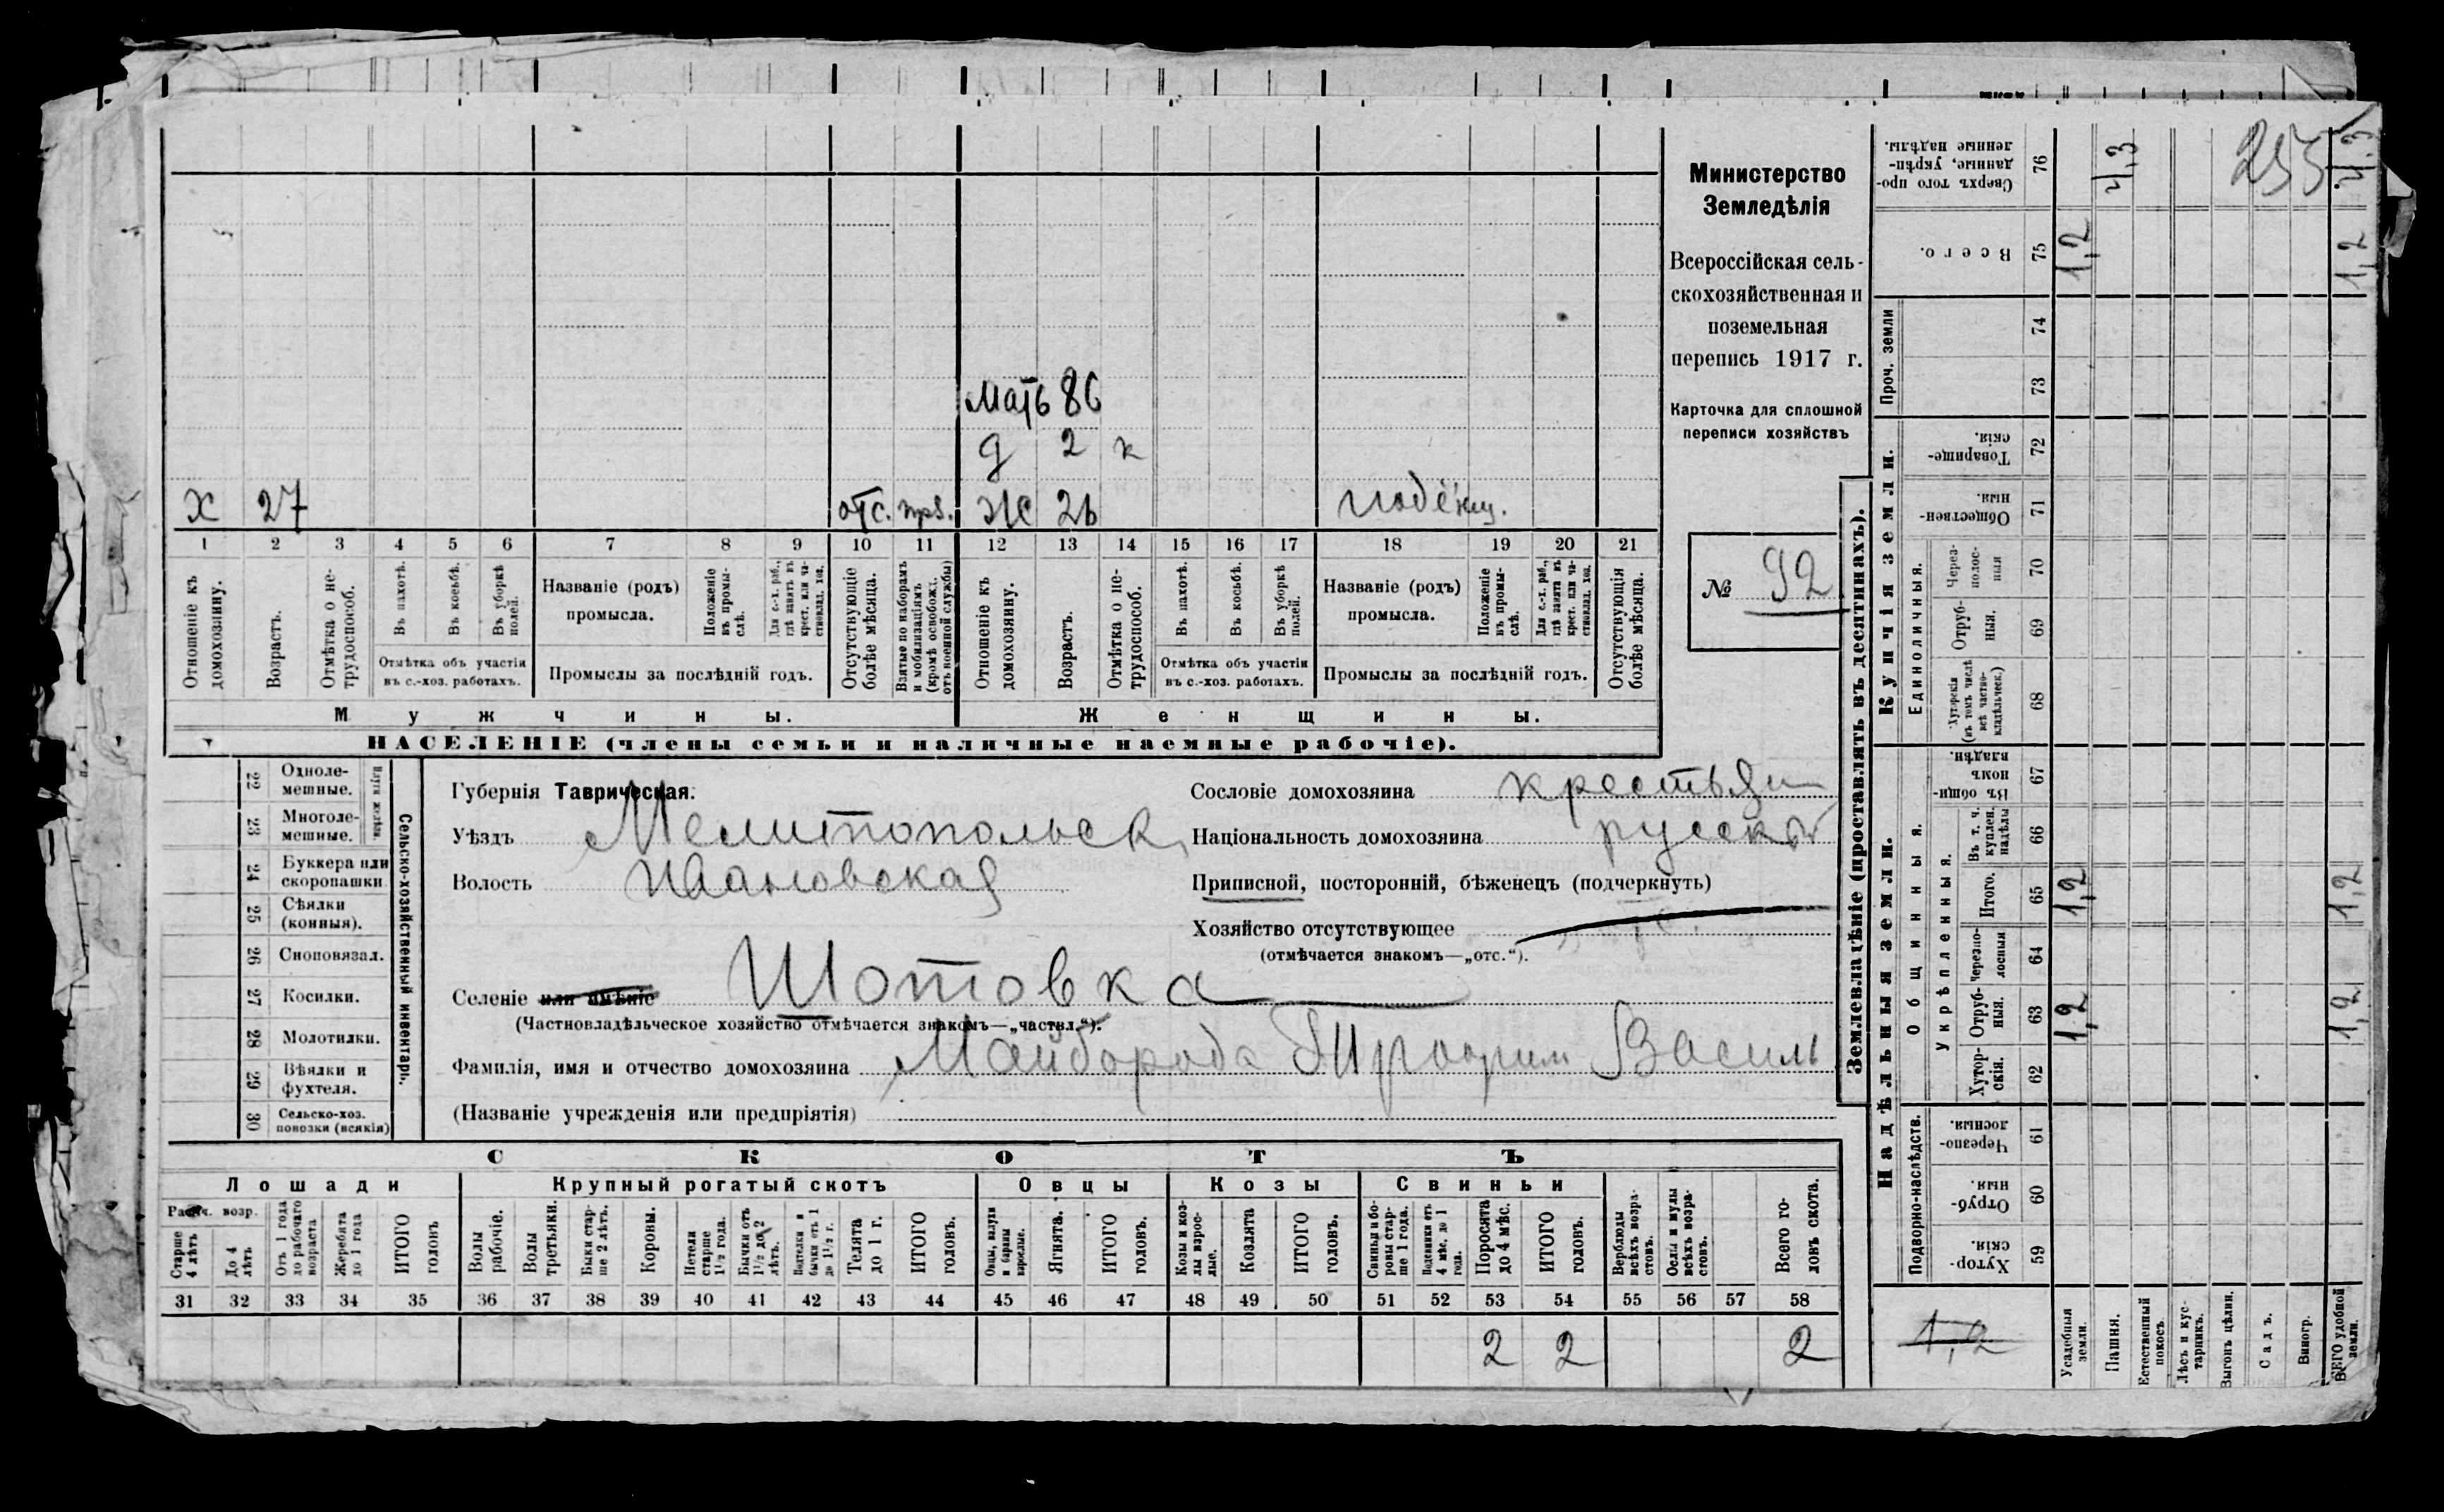 Министерство
Земледѣлія
Всероссійская сель-
скохозяйственная и
поземельная
перепись 1917 г.
Карточка для сплошной
переписи хозяйствъ
№ 92
мать 86
д 2 н
х 27 отс. ж 26
1 2 3 4 5 6 7 8 9 10 11 12 13 14 15 16 17 18 19 20 21
Отношеніе къ домохозяину.
Возрастъ.
Отмѣтка о не-трудоспособ.
Въ пахотѣ.
Въ косьбѣ.
Въ уборкѣ полей.
Отмѣтка объ участіи въ с.-хоз. работахъ.
Названіе (родъ) промысла.
Положеніе въ промы-слѣ.
Для с.-х. раб., гдѣ занятъ въ крест. или ча-стновлад. хоз.
Промыслы за послѣдній годъ.
Отсутствующіе болѣе мѣсяца.
Взятые по наборамъ и мобилизаціямъ (кромѣ освобожд. отъ военной службы)
Отношеніе къ домохозяину.
Возрастъ.
Отмѣтка о не-трудоспособ.
Въ пахотѣ.
Въ косьбѣ.
Въ уборкѣ полей.
Отмѣтка объ участіи въ с.-хоз. работахъ.
Названіе (родъ) промысла.
Положеніе въ промы-слѣ.
Для с.-х. раб., гдѣ занятъ въ крест. или ча-стновлад. хоз.
Промыслы за послѣдній годъ.
Отсутствующія болѣе мѣсяца.
Мужчины. Женщины.
НАСЕЛЕНІЕ (члены семьи и наличные наемные рабочіе).
Сельско-хозяйственный инвентарь.
22 Одноле-мешные.
23 Многоле-мешные.
24 Буккера или скоропашки
25 Сѣялки (конныя).
26 Сноповязал.
27 Косилки.
28 Молотилки.
29 Вѣялки и фухтеля.
30 Сельско-хоз. повозки (всякія)
Губернія Таврическая.
Уѣздъ Мелитопольск
Волость Ивановская
Сословіе домохозяина крестьян
Національность домохозяина русский
Приписной, посторонній, бѣженецъ (подчеркнуть)
Хозяйство отсутствующее
(отмѣчается знакомъ—„отс.“).
Селеніе или имѣніе Шотовка
(Частновладѣльческое хозяйство отмѣчается знакомъ—„частвл.“).
Фамилія, имя и отчество домохозяина Майборода Трофим Василь
(Названіе учрежденія или предпріятія)
СКОТЪ
Лошади Крупный рогатый скотъ Овцы Козы Свиньи
Рабоч. возр.
Старше 4 лѣтъ
До 4 лѣтъ
Отъ 1 года до рабочаго возраста
Жеребята до 1 года
ИТОГО головъ
Волы рабочіе.
Волы третьяки.
Быки стар-ше 2 лѣтъ.
Коровы.
Нетели старше 1½ года.
Бычки отъ 1½ до 2 лѣтъ.
Подтелки и бычки отъ 1 до 1½ г.
Телята до 1 г.
ИТОГО головъ.
Овцы, валухи и бараны взрослые.
Ягнята.
ИТОГО головъ.
Козы и коз-лы взрос-лые.
Козлята
ИТОГО головъ.
Свиньи и бо-ровы стар-ше 1 года.
Подсвинки отъ 4 мѣс. до 1 года.
Поросята до 4 мѣс.
ИТОГО головъ.
Верблюды всѣхъ возра-стовъ.
Ослы и мулы всѣхъ возра-стовъ.
Всего го-ловъ скота.
31 32 33 34 35 36 37 38 39 40 41 42 43 44 45 46 47 48 49 50 51 52 53 54 55 56 57 58
2 2 2
Землевладѣніе (проставлять въ десятинахъ).
253
Сверхъ того про-данные, укрѣп-ленные надѣлы. 76 4,3 4,3
Всего. 75 1,2 1,2
Проч. земли
74
73
Купчія земли.
Товарище-скія. 72
Обществен-ныя. 71
Единоличныя.
Через-полос-ныя 70
Отруб-ныя. 69
Хуторскія (въ томъ числѣ всѣ частно-владѣльческ.) 68
Надѣльныя земли.
Общинныя.
Въ общи-номъ владѣн. 67
Укрѣпленныя.
Въ т. ч. куплен. надѣлы 66
Итого. 65 1,2 1,2
Черезпо-лосныя 64
Отруб-ныя. 63 1,2 1,2
Хутор-скія. 62
Подворно-наслѣдств.
Черезпо-лосныя. 61
Отруб-ныя. 60
Хутор-скія. 59
1,2
Усадебныя земли.
Пашня.
Естественный покосъ.
Лѣсъ и кус-тарникъ.
Выгонъ цѣлин.
Садъ.
Виногр.
ВСЕГО удобной земли.